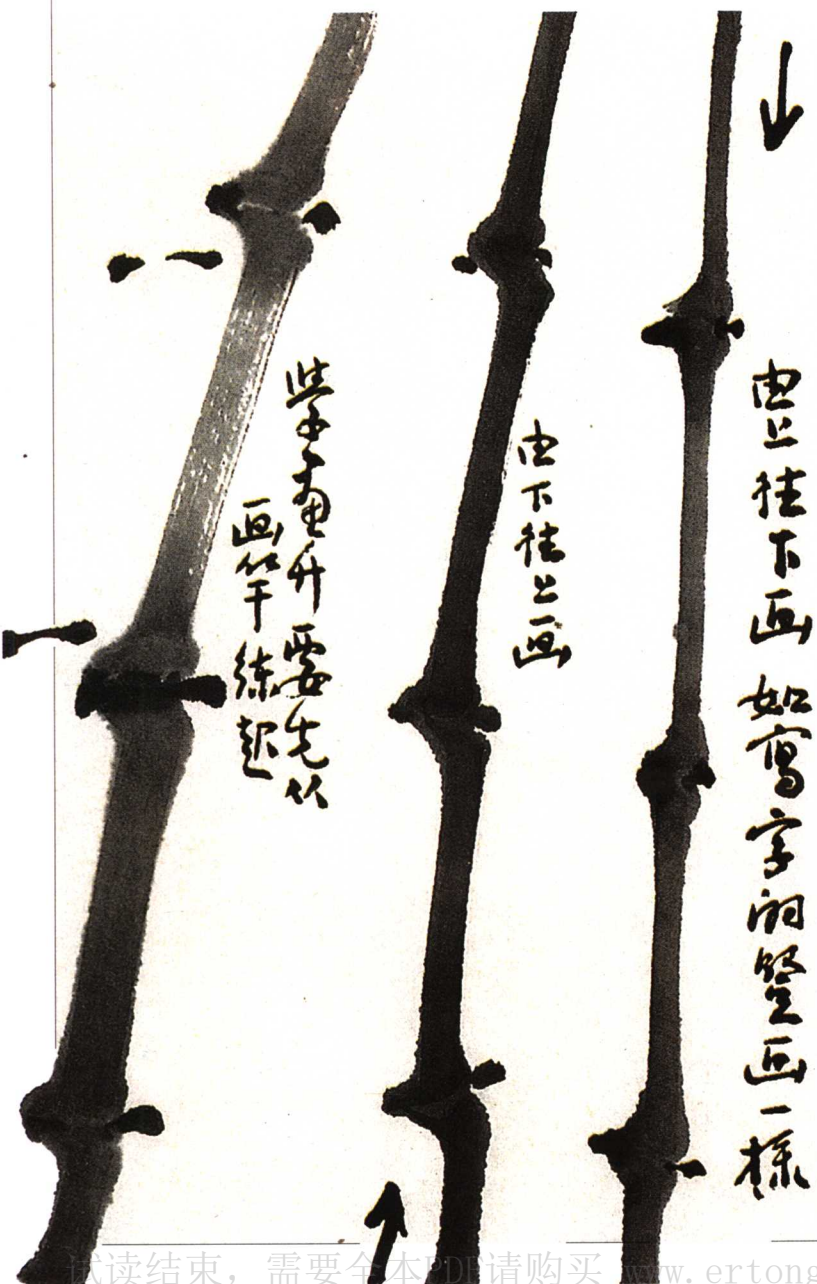 由上往下画 如寫字的竪画一樣
由下往上画
学画竹要先从
画竿练起
试读结束，需要全本PDF请购买 www.ertong